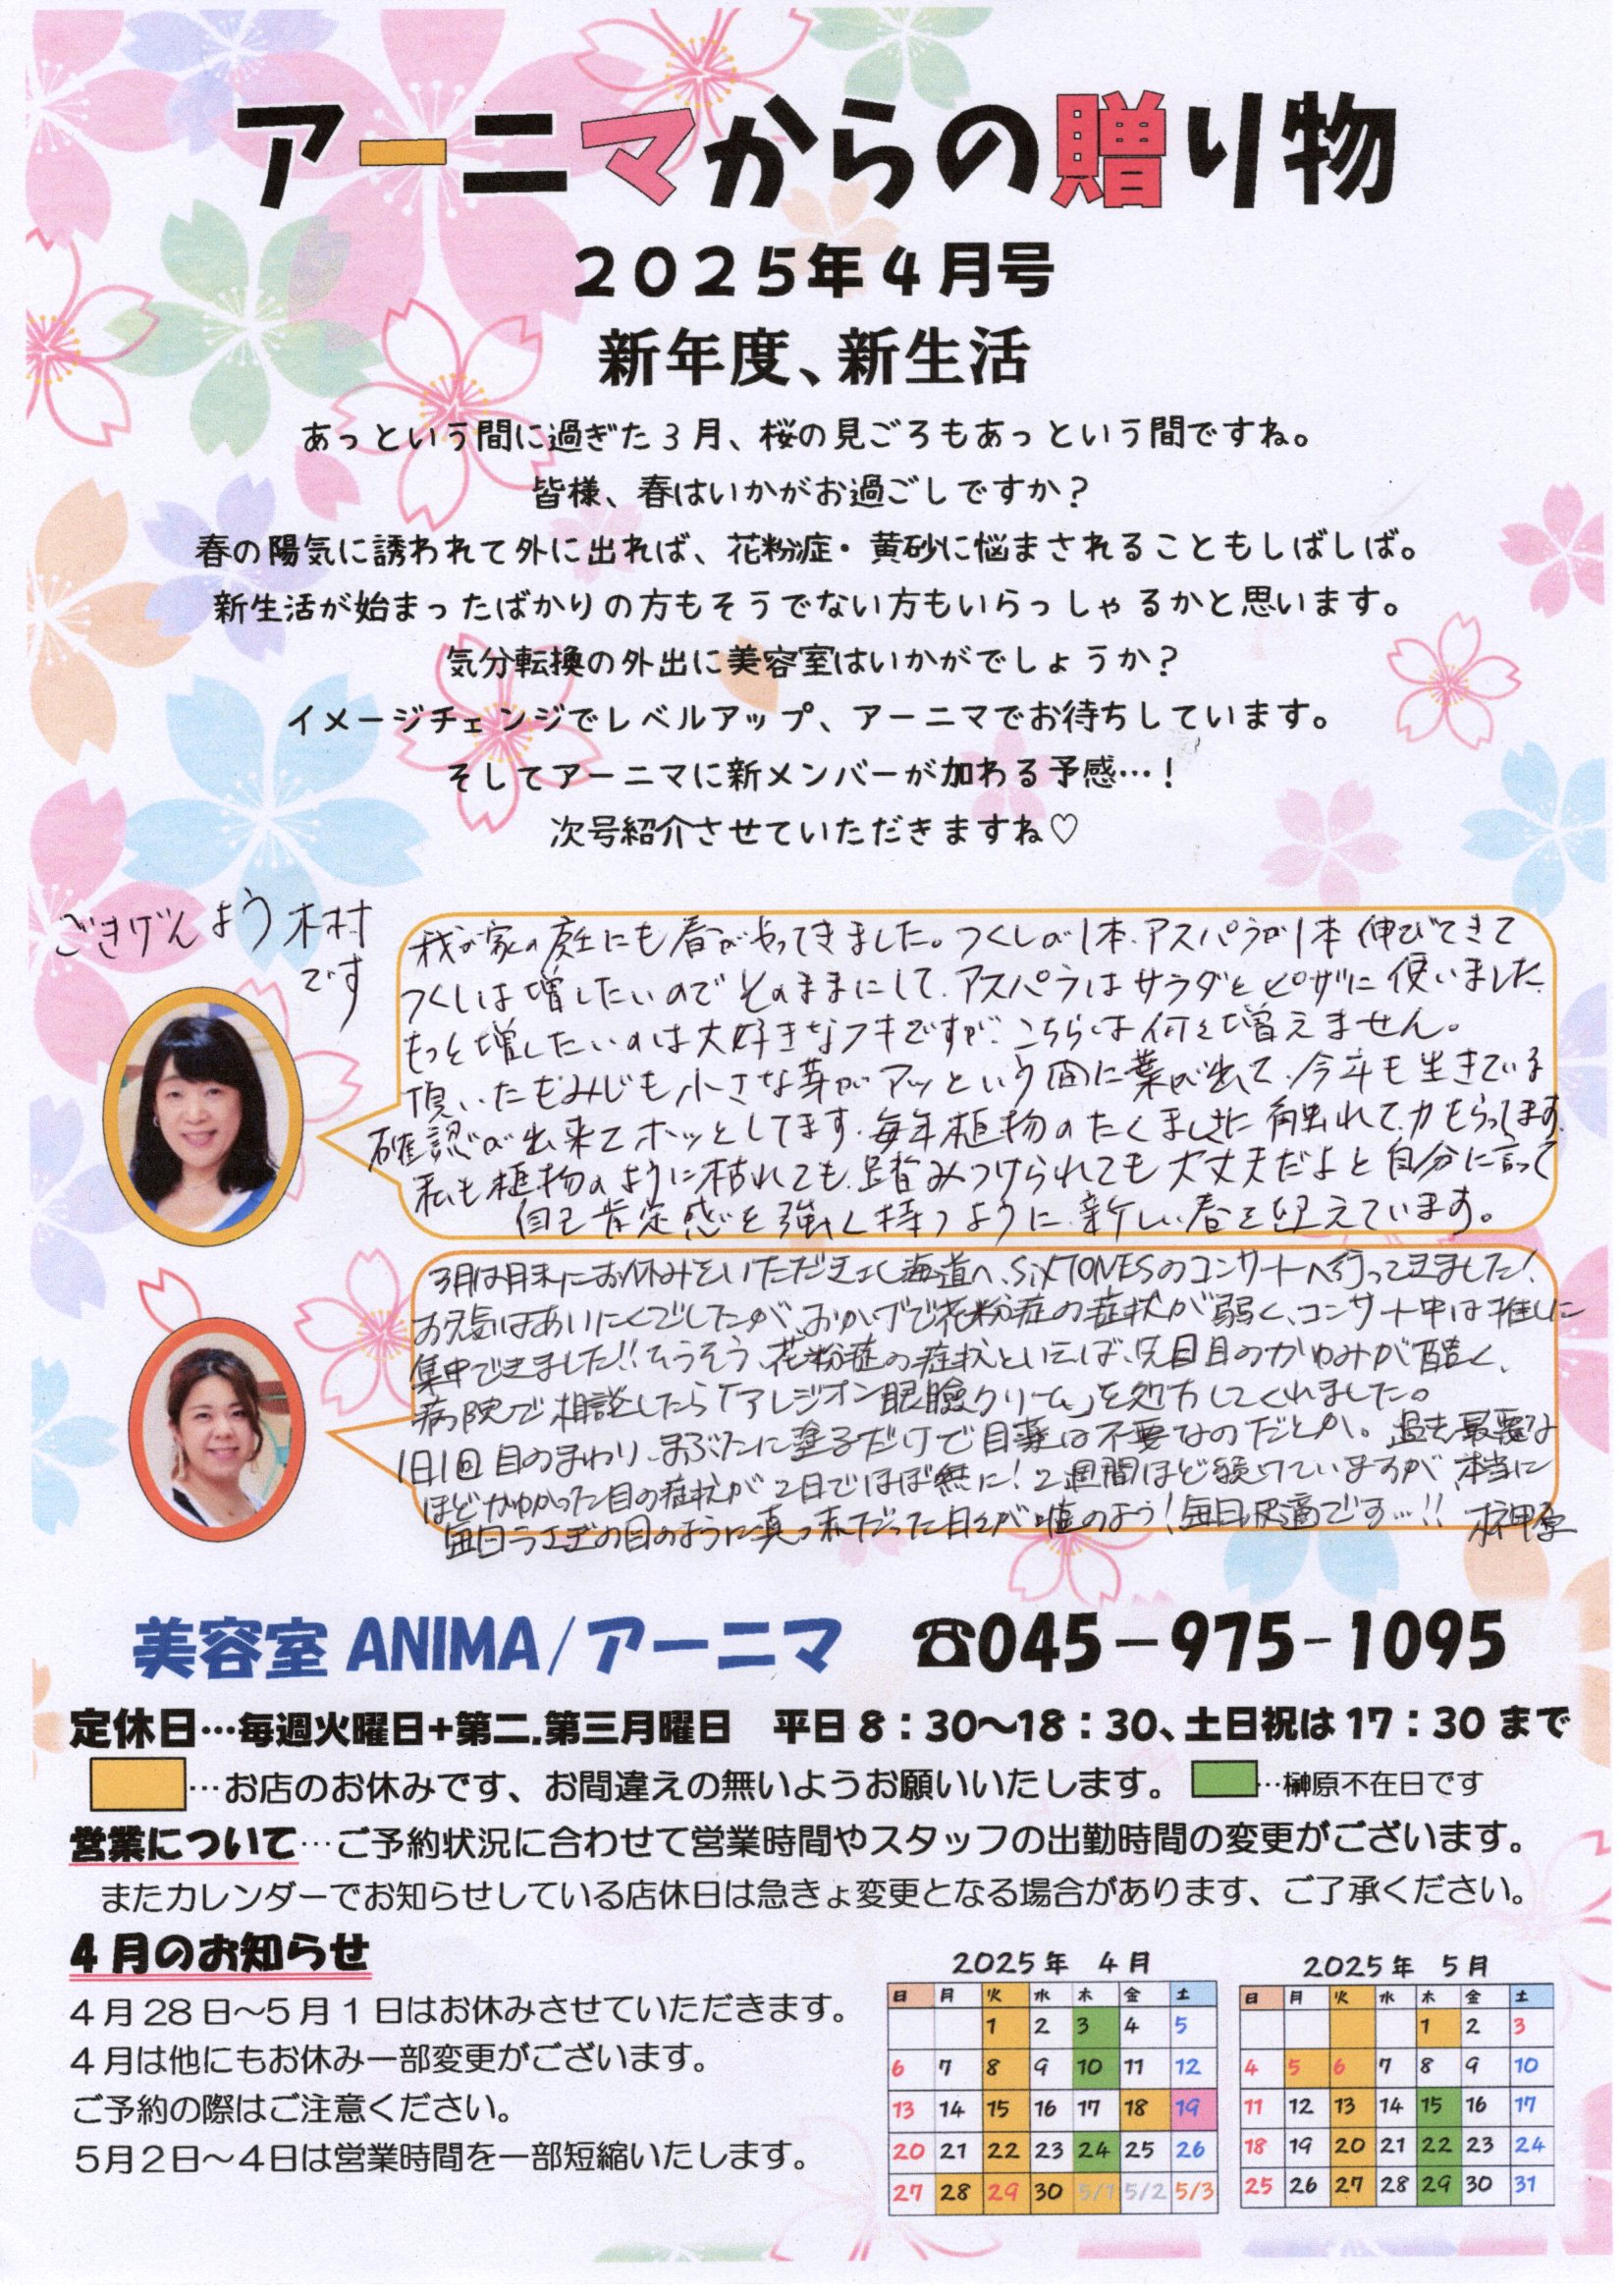 アーニマからの贈り物
2025年4月号
新年度、新生活
あっという間に過ぎた3月、桜の見ごろもあっという間ですね。
皆様、春はいかがお過ごしですか？
春の陽気に誘われて外に出れば、花粉症・黄砂に悩まされることもしばしば。
新生活が始まったばかりの方もそうでない方もいらっしゃるかと思います。
気分転換の外出に美容室はいかがでしょうか？
イメージチェンジでレベルアップ、アーニマでお待ちしています。
そしてアーニマに新メンバーが加わる予感…！
次号紹介させていただきますね♡
ごきげんよう木村
です
我が家の庭にも春がやってきました。つくしが1本、アスパラが1本伸びてきて
つくしは増したいのでそのままにして、アスパラはサラダとピザに使いました。
もっと増したいのは大好きなフキですが、こちらは何と増えません。
頂いたもみじも小さな芽がアッという間に葉が出て、今年も生きている
確認が出来てホッとしてます。毎年植物のたくましさに触れて力もらってます。
私も植物のように枯れても、踏みつけられても大丈夫だよと自分に言って
自己肯定感を強く持つように、新しい春を迎えています。
3月は月末にお休みをいただきまして北海道へ、SixTONESのコンサートへ行ってきました！
お天気はあいにくでしたが、おかげで花粉症の症状が弱く、コンサート中は推しに
集中できました!!そうそう、花粉症の症状といえば、目のかゆみが酷く、
病院で相談したら「アレジオン眼瞼クリーム」を処方してくれました。
1日1回目のまわり、まぶたに塗るだけで目薬は不要なのだとか。過去最悪な
ほどかゆかった目の症状が2日でほぼ無に！2週間ほど続けていますが、本当に
毎日うさぎの目のように真っ赤だった日々が嘘のよう！毎日快適です…!! 榊原
美容室 ANIMA/アーニマ ☎045－975-1095
定休日…毎週火曜日+第二.第三月曜日 平日8：30～18：30、土日祝は17：30まで
…お店のお休みです、お間違えの無いようお願いいたします。 …榊原不在日です
営業について…ご予約状況に合わせて営業時間やスタッフの出勤時間の変更がございます。
またカレンダーでお知らせしている店休日は急きょ変更となる場合があります、ご了承ください。
4月のお知らせ
4月28日～5月1日はお休みさせていただきます。
4月は他にもお休み一部変更がございます。
ご予約の際はご注意ください。
5月2日～4日は営業時間を一部短縮いたします。
2025年 4月
日 月 火 水 木 金 土
1 2 3 4 5
6 7 8 9 10 11 12
13 14 15 16 17 18 19
20 21 22 23 24 25 26
27 28 29 30 5/1 5/2 5/3
2025年 5月
日 月 火 水 木 金 土
1 2 3
4 5 6 7 8 9 10
11 12 13 14 15 16 17
18 19 20 21 22 23 24
25 26 27 28 29 30 31